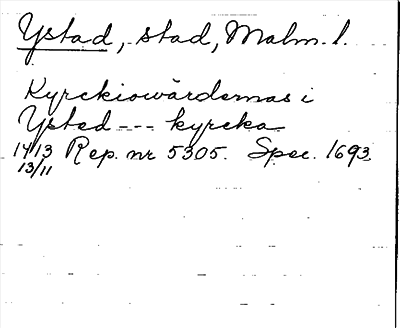 Ystad, stad, Malm. l.
Kyrckiowärdernas i
Ysted --- kyrcka
1413 Rep. nr 5305. Spec. 1693
13/11